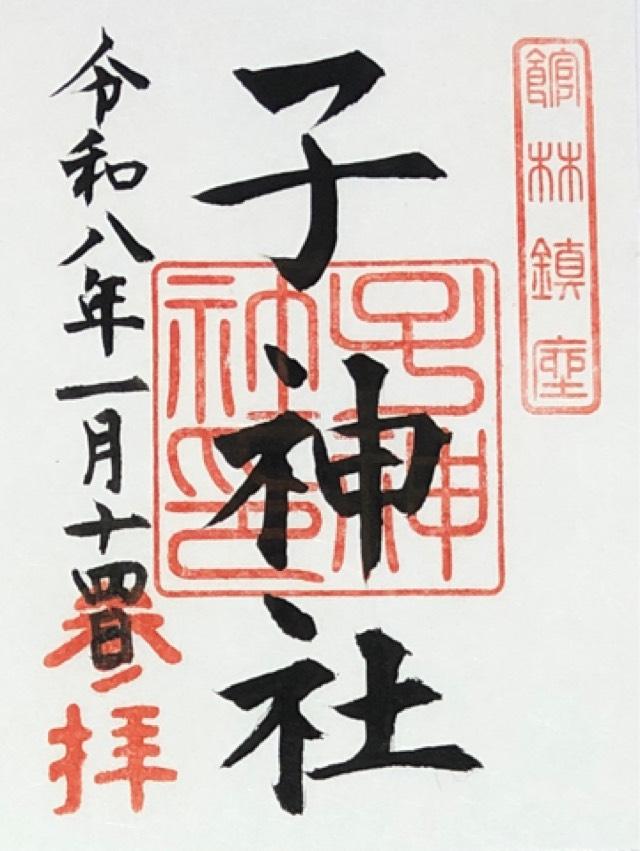 館林鎮座
子神社
子神社印
令和八年一月十四日
奉拝